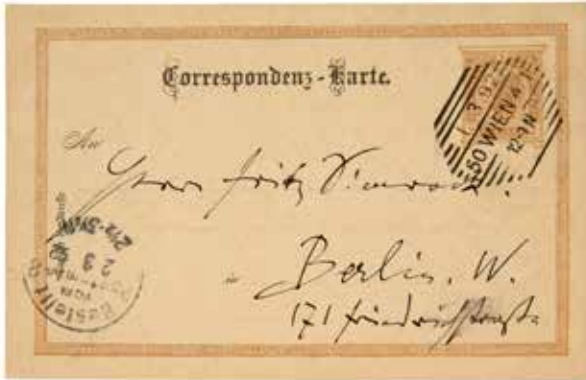 Correspondenz-Karte.
1 3 9
50 WIEN 4/1
12-1N
An
Herrn Fritz Simrock.
in
Berlin. W.
171 Friedrichstraße
Bestellt
vom
Postamte
2 3 92
2½-3¾N